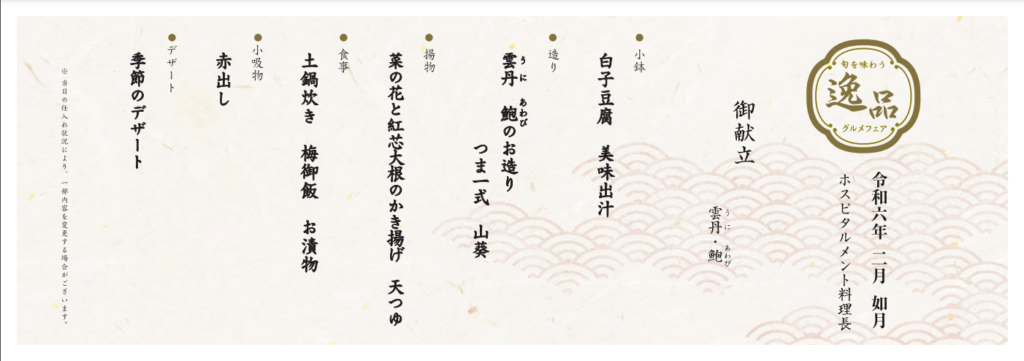 旬を味わう
逸品
グルメフェア
令和六年 二月 如月
ホスピタルメント料理長
御献立
雲丹・鮑
うに あわび
●小鉢
白子豆腐 美味出汁
●造り
雲丹 鮑のお造り
うに あわび
つま一式 山葵
●揚物
菜の花と紅芯大根のかき揚げ 天つゆ
●食事
土鍋炊き 梅御飯 お漬物
●小吸物
赤出し
●デザート
季節のデザート
※当日の仕入れ状況により、一部内容を変更する場合がございます。